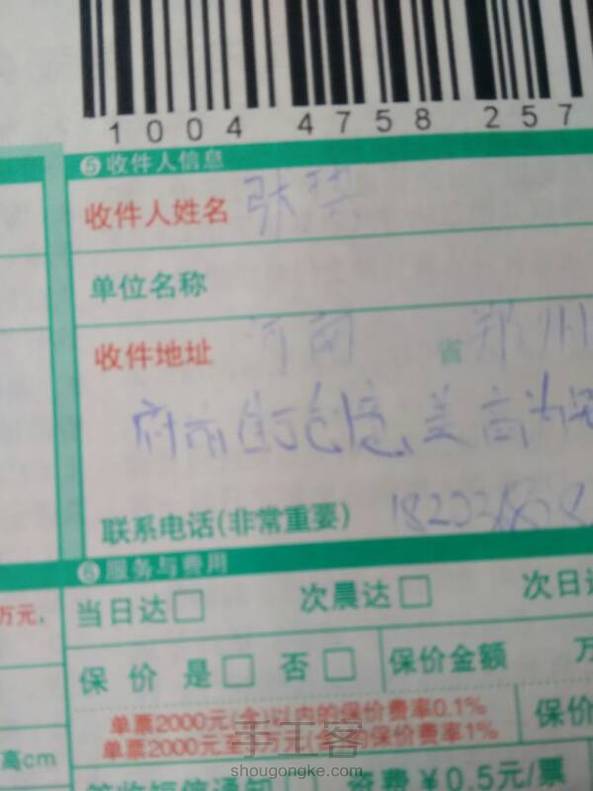 1004 4758 257
❺收件人信息
收件人姓名 张
单位名称
收件地址 河南 省 郑州
府前街
联系电话(非常重要)
❻服务与费用
万元,
当日达□ 次晨达□ 次日达
保 价 是□ 否□ 保价金额 万
单票2000元(含)以内的保价费率0.1%
保价
单票2000元至 万元(含)的保价费率1%
高cm
签收短信通知 资费￥0.5元/票
手工客
shougongke.com